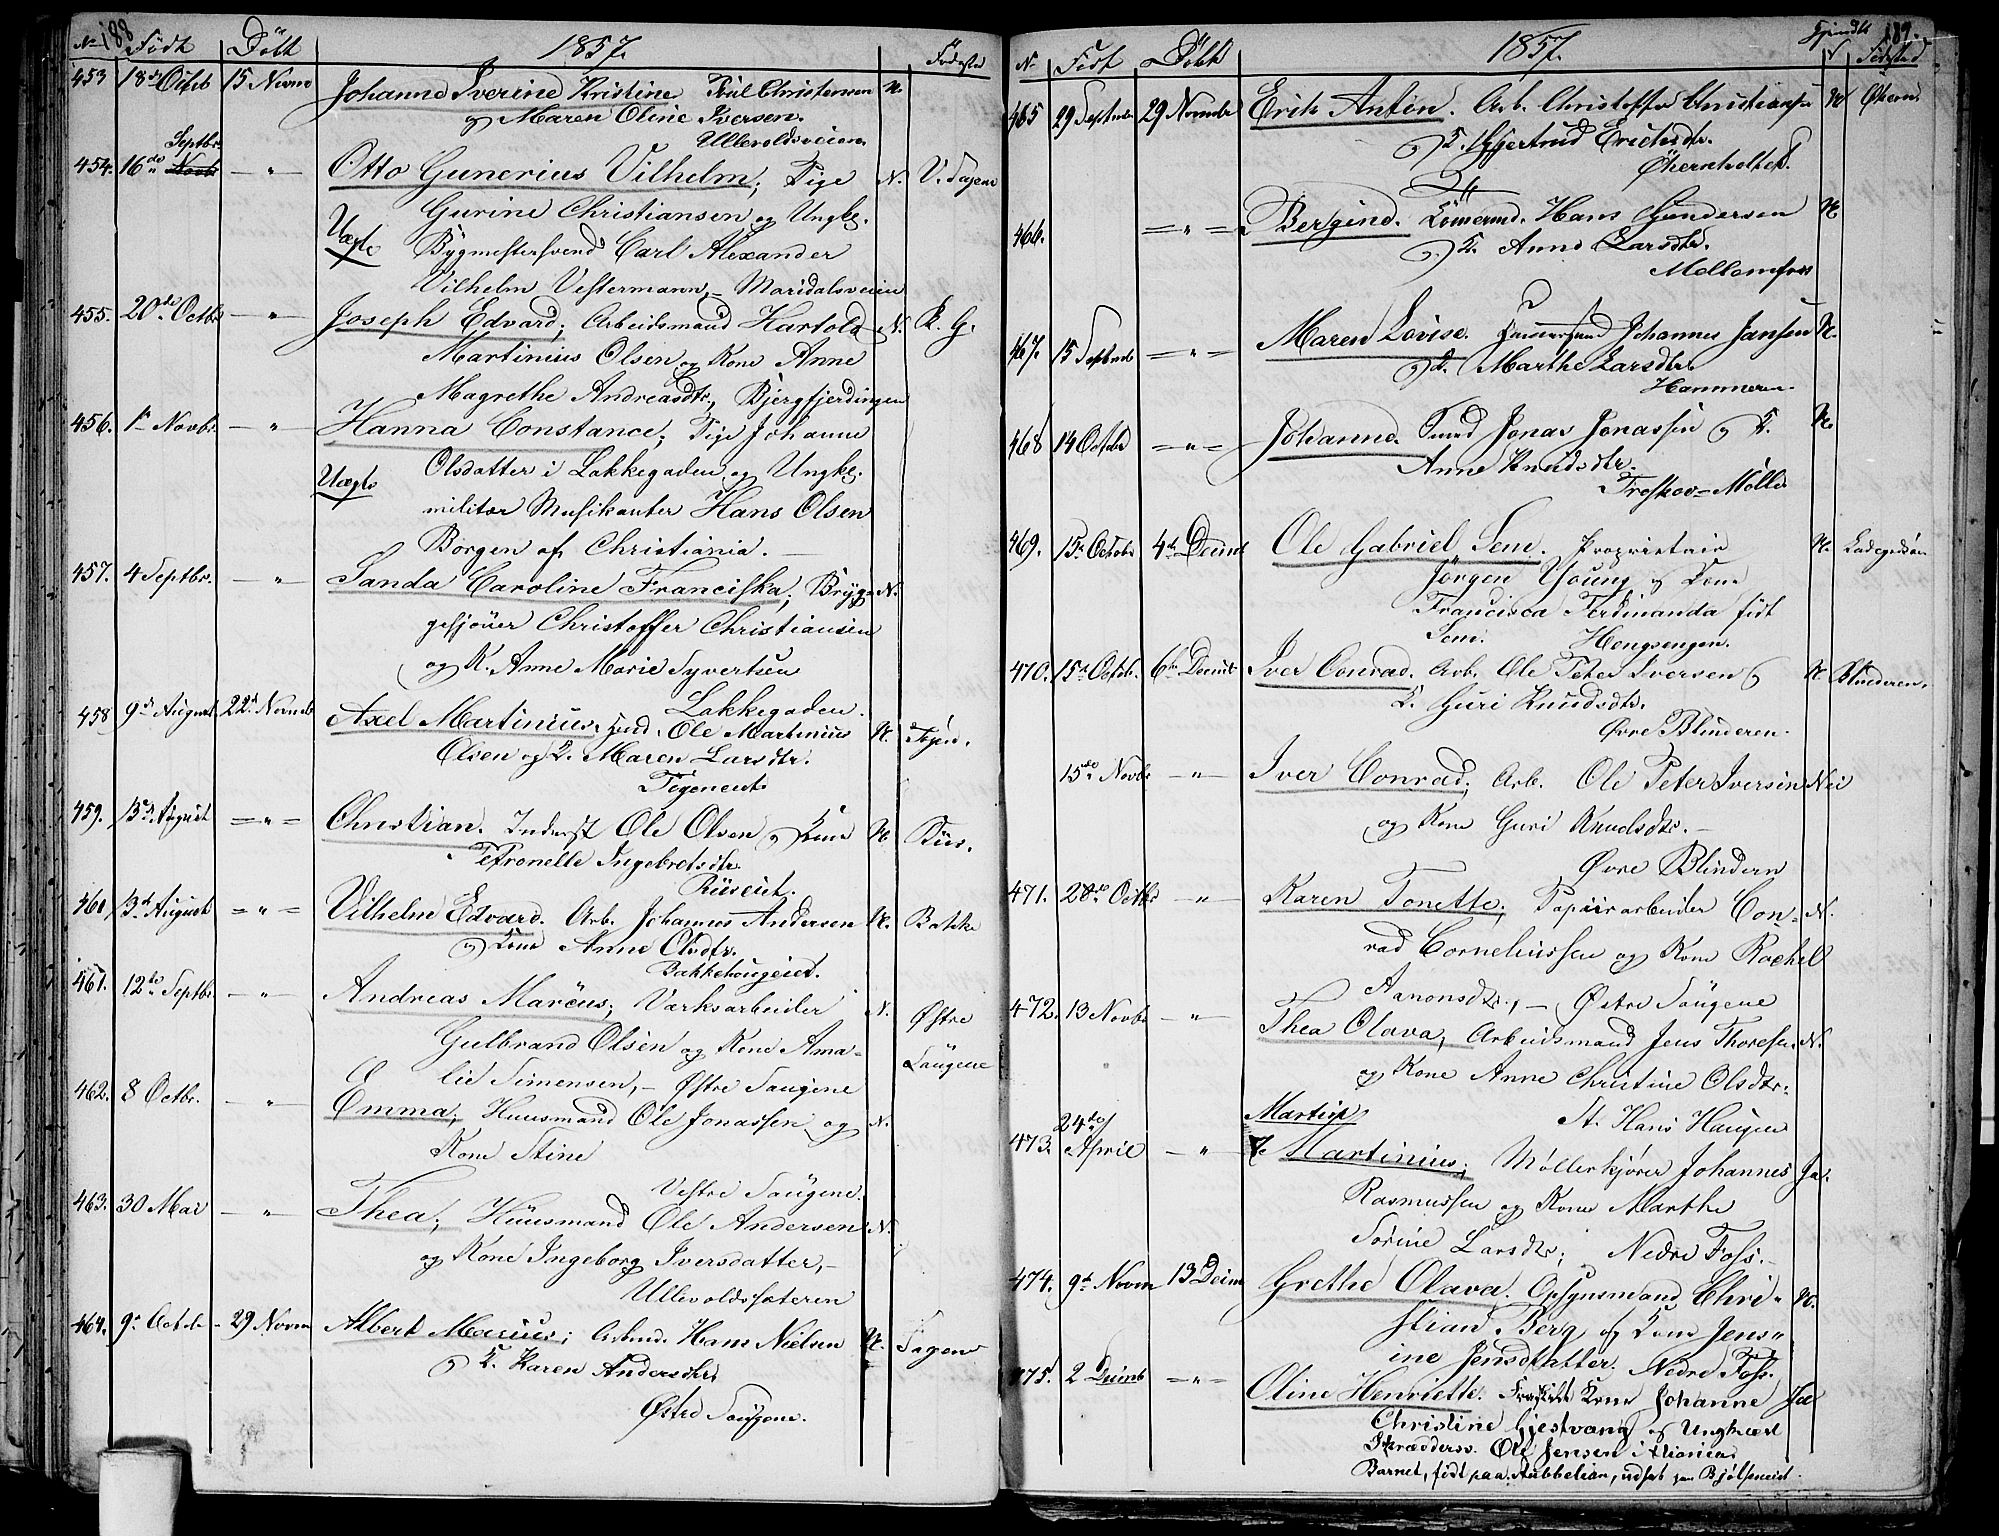 188
No Født Døbt 1857. Fødested
453 18de Octbr 15 Novmbr Johanne Iverine Kristine Poul Christensen N.
og Maren Oline Iversen.
Ullevoldsveien
Septbr.
454. 16de Novbr — " — Otto Gunerius Vilhelm; Pige N. V. Sagene
Gurine Christiansen og Ungk.
Uægte Bygmestersvend Carl Alexander
Vilhelm Vestermann, — Maridalsveien
455. 20de Octbr — " — Joseph Edvard; Arbeidsmand Hartold N. K. G.
Martinius Olsen og Kone Anne
Magrethe Andreasdtr, Bjergfjerdingen
456. 1ste Novbr. — " — Hanna Constance; Pige Johanne
Uægte Olsdatter i Lakkegaden og Ungk.
militær Musikanter Hans Olsen
Borgen af Christiania. —
457. 4 Septbr. — " — Sanda Caroline Franciska; Brygge- N.
gesjouer Christoffer Christiansen
og K. Anne Marie Syvertsen
Lakkegaden.
458 9de August 22de Novmb Axel Martinius. Ole Martinius N. Tøien.
Olsen og K. Maren Larsdtr.
Tøieneiet.
459. 13de August = " = Christian. Inderst Ole Olsen og Kone N.
Petronelle Ingebretsdtr.
460 3de August = " = Vilhelm Edvard. Arb. Johannes Andersen N. Bakke
og Kone Anne Olsdtr.
Bakkehougeiet.
461. 12te Septbr. — " — Andreas Marcus; Værksarbeider N. Østre
Gulbrand Olsen og Kone Ama- Saugene
lie Simensen, — Østre Saugene
462. 8 Octbr. — " — Emma; Huusmand Ole Jonassen og N.
Kone Stine
Vestre Saugene.
463. 30 Mai — " — Thea; Huusmand Ole Andersen N.
og Kone Ingeborg Iversdatter, —
Ullevoldsæteren
464. 9de Octbr - 29 Novm Albert Marius; Arbmd. Hans Nielsen N. Sagene
og K. Karen Andersdtr.
Østre Saugene.
189.
N. Født Døbt 1857. V. Fødested
465 29 Septmbr 29 Novmbr Erik Anton. Arb. Christoffer Christiansen N Økern.
og K. Gjertrud Erichsdtr.
Økernholtet.
466. = " = Bergine. Hans Gundersen N.
og K. Anne Larsdtr.
Mellemfos
467. 15 Septmbr = " = Maren Lovise. Johannes Jansen N.
og K. Marthe Larsdtr.
Hammeren.
468 14 October = " = Johanne. Smed Jonas Jonassen og K. N.
Anne Knudsdtr.
469. 15de Octobr 4de Decmb Ole Gabriel Sem. Proprietair N. Ladegaardsøen
Jørgen Young og Kone
Francisca Ferdinanda født
Sem. Hengsengen.
470. 15de Octob. 6te Decmb Iver Conrad. Arb. Ole Peter Iversen og N Blinderen.
K. Guri Knudsdtr.
Øvre Blinderen.
15de Novbr — " — Iver Conrad; Arb. Ole Peter Iversen Nei
og Kone Guri Knudsdtr. —
Øvre Blindern
471. 28de Octbr — " — Karen Tonette; Papiirarbeider Con- N.
rad Corneliussen og Kone Rachel
Aronsdtr., — Østre Saugene
472. 13 Novbr — " — Thea Olava, Arbeidsmand Jens Thoresen N.
og Kone Anne Christine Olsdtr. -
Martin St. Hans Haugen
24de
473. April — " — Martinius; Møllerkjører Johannes Ja.
Rasmussen og Kone Marthe
Sorine Larsdtr; Nedre Foss. —
474. 9de Novm 13 Decm Grethe Olava. Opsynsmand Chri- N.
stian Berg og Kone Jens-
ine Jensdatter. Nedre Foss.
475. 2 Decmb = " = Oline Henriette. Fraskilt Kone Johanne Ja
Christine Gjestvang og Ungkarl
Skræddersv. Ole Jensen i
Barnet, født paa Stubbelian, udsat paa Bjølseneiet.